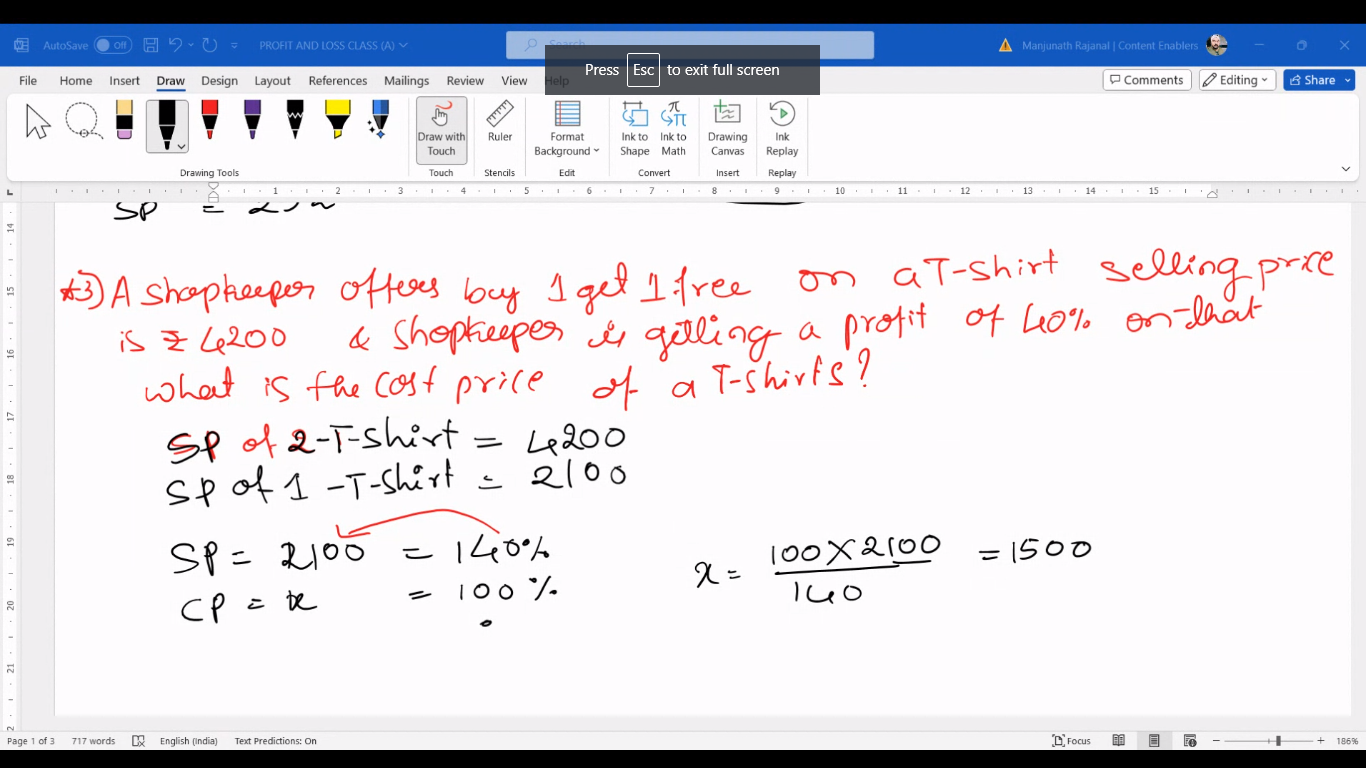 AutoSave Off PROFIT AND LOSS CLASS (A) Search Manjunath Rajanal | Content Enablers
Press Esc to exit full screen
File Home Insert Draw Design Layout References Mailings Review View Help Comments Editing Share
Draw with Touch Ruler Format Background Ink to Shape Ink to Math Drawing Canvas Ink Replay
Drawing Tools Touch Stencils Edit Convert Insert Replay
1 2 3 4 5 6 7 8 9 10 11 12 13 14 15
14
15
16
17
18
19
20
21
SP = 252
*3) A shopkeeper offers buy 1 get 1 free on a T-shirt selling price
is ₹ 4200 & shopkeeper is getting a profit of 40% on that
what is the cost price of a T-shirts?
SP of 2-T-shirt = 4200
SP of 1-T-shirt = 2100
SP = 2100 = 140%
CP = x = 100%
x = 100 X 2100 / 140 = 1500
Page 1 of 3 717 words English (India) Text Predictions: On Focus 186%